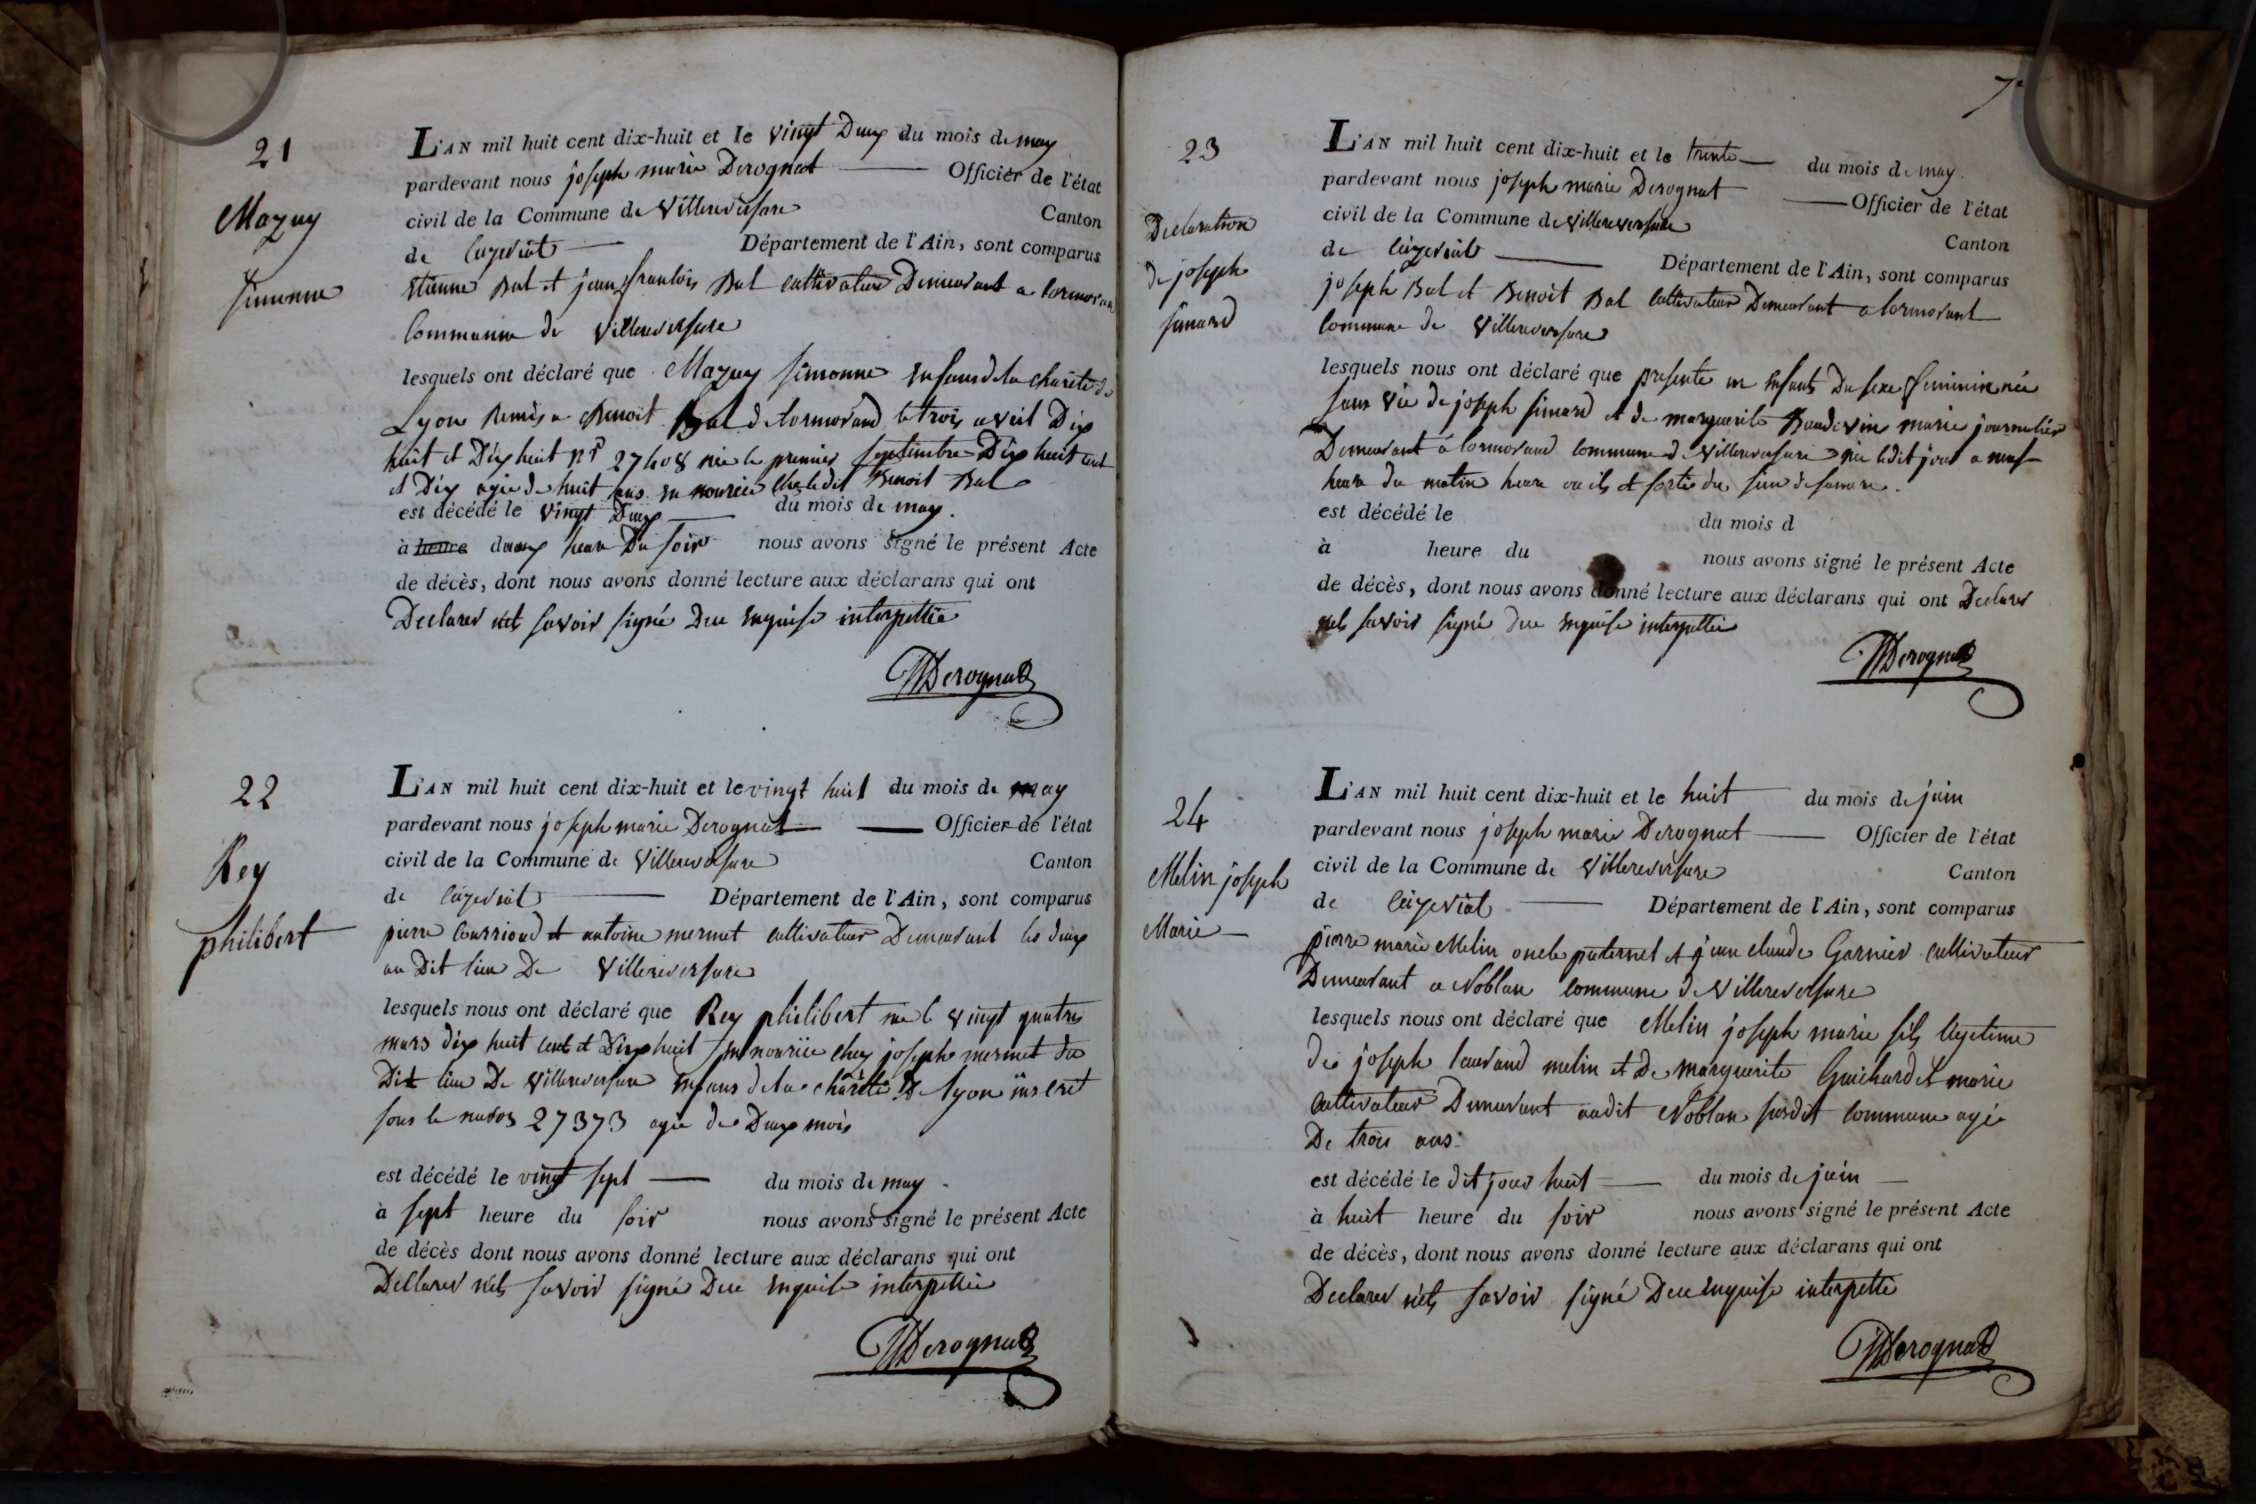 21
Mazuy
Simonne
L'AN mil huit cent dix-huit et le vingt Deux du mois de may
pardevant nous joseph marie Derognat Officier de l'état
civil de la Commune de Villereversure Canton
de Ceyzeriat Département de l'Ain, sont comparus
Etienne Bal et jean françois Bal cultivateur Demeurant a Cormoran
Commune de Villereversure
lesquels ont déclaré que Mazuy Simonne enfans de la charité de
Lyon Remis a Benoit Bal de Cormorand le trois avril Dix
huit et Dix huit nr 27408 née le premier septembre Dix huit cent
et Dix agée de huit ans en nourice chez ledit Benoit Bal
est décédé le vingt Deux du mois de may.
à heure deux heure Du soir nous avons signé le présent Acte
de décès, dont nous avons donné lecture aux déclarans qui ont
Declarer nets savoir signé Dee enquise interpellée
JMDerognat
22
Rey
philibert
L'AN mil huit cent dix-huit et le vingt huit du mois de may
pardevant nous joseph marie Derognat Officier de l'état
civil de la Commune de Villereversure Canton
de Ceyzeriat Département de l'Ain, sont comparus
pierre Courrioud et antoine mermet cultivateur Demeurant les deux
au Dit lieu De Villereversure
lesquels nous ont déclaré que Rey philibert née le vingt quatre
mars dix huit cent et Dix huit en nouriie chez joseph mermet du
Dit lieu De Villereversure enfans de la charité De lyon inscrit
sous le 27373 agée de Deux mois
est décédé le vingt sept du mois de may.
à sept heure du soir nous avons signé le présent Acte
de décès dont nous avons donné lecture aux déclarans qui ont
Declarer nets savoir signé Dee enquise interpellée
JMDerognat
7
23
Declaration
de joseph
Simard
L'AN mil huit cent dix-huit et le trente du mois de may.
pardevant nous joseph marie Derognat Officier de l'état
civil de la Commune de Villereversure Canton
de Ceyzeriat Département de l'Ain, sont comparus
joseph Bal et Benoit Bal cultivateur Demeurant a Cormorant
Commune de Villereversure
lesquels nous ont déclaré que presente un enfants Du sexe feminin née
sans vie de joseph simard et de marguerite Baudevin marie journalier
Demeurant a Cormorand commune de Villereversure née ledit jour a neuf
heure du matin heure ou ils et sortie du sein de sa mere.
est décédé le du mois d
à heure du nous avons signé le présent Acte
de décès, dont nous avons donné lecture aux déclarans qui ont Declarer
nets savoir signé dee enquise interpellée
JMDerognat
24
Melin joseph
Marie
L'AN mil huit cent dix-huit et le huit du mois de juin
pardevant nous joseph marie Derognat Officier de l'état
civil de la Commune de Villereversure Canton
de Ceyzeriat Département de l'Ain, sont comparus
pierre marie Melin oncle paternel et jean claude Garnier cultivateur
Demeurant a Noblan commune de Villereversure
lesquels nous ont déclaré que Melin joseph marie fils legetime
de joseph laurand melin et De marguerite Guichardet marie
cultivateur Demeurant audit Noblan susdit commune agée
De trois ans.
est décédé le dit jour huit du mois de juin
à huit heure du soir nous avons signé le présent Acte
de décès, dont nous avons donné lecture aux déclarans qui ont
Declarer nets savoir signé Dee enquise interpelle
JMDerognat